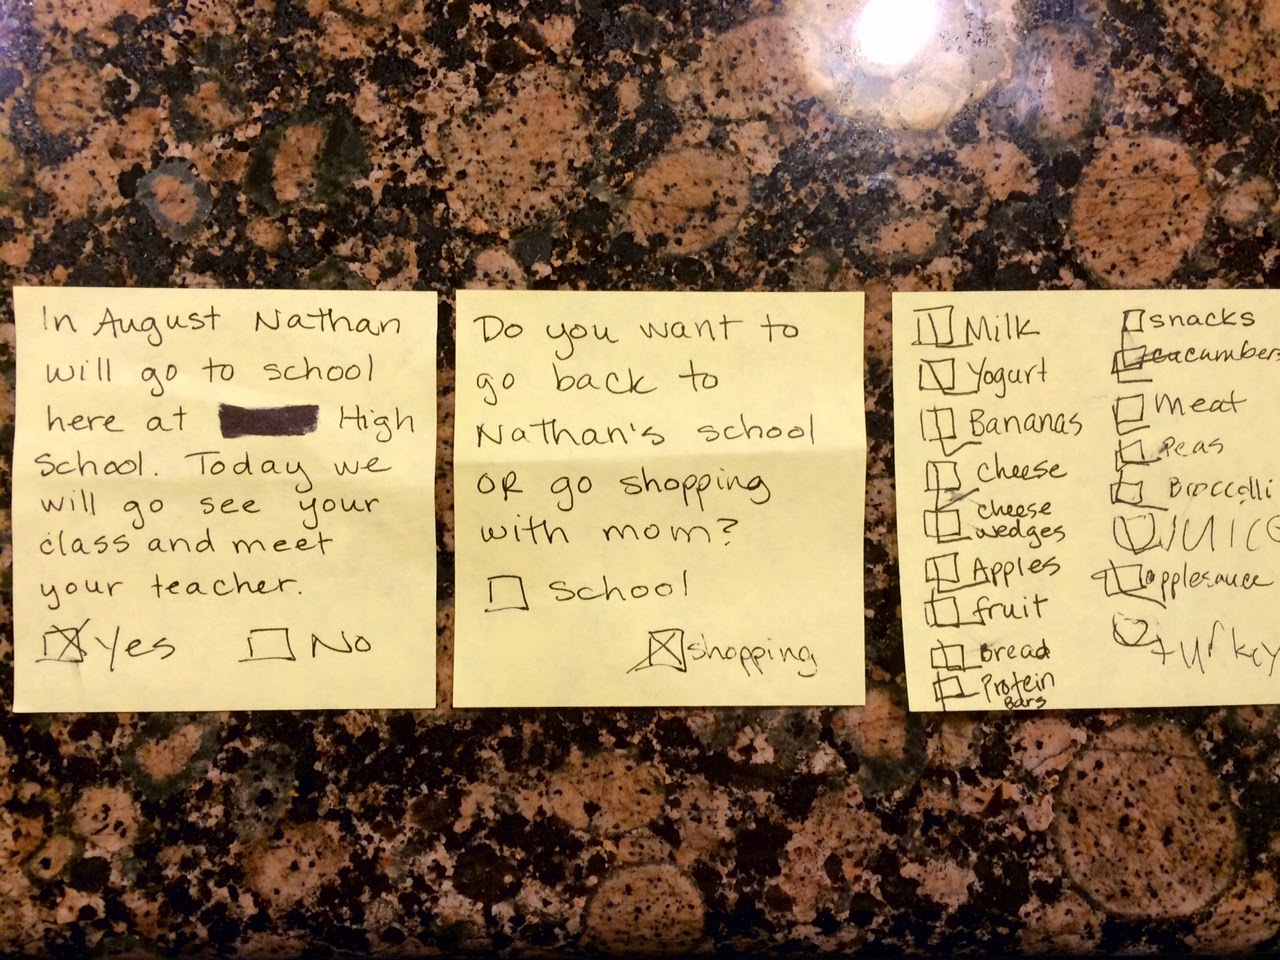 In August Nathan
will go to school
here at High
School. Today we
will go see your
class and meet
your teacher.
Yes No
Do you want to
go back to
Nathan's school
OR go shopping
with mom?
School
shopping
Milk
Yogurt
Bananas
cheese
cheese
wedges
Apples
fruit
Bread
Protein
Bars
snacks
cucumbers
meat
Peas
Broccolli
JUICE
applesauce
turkey